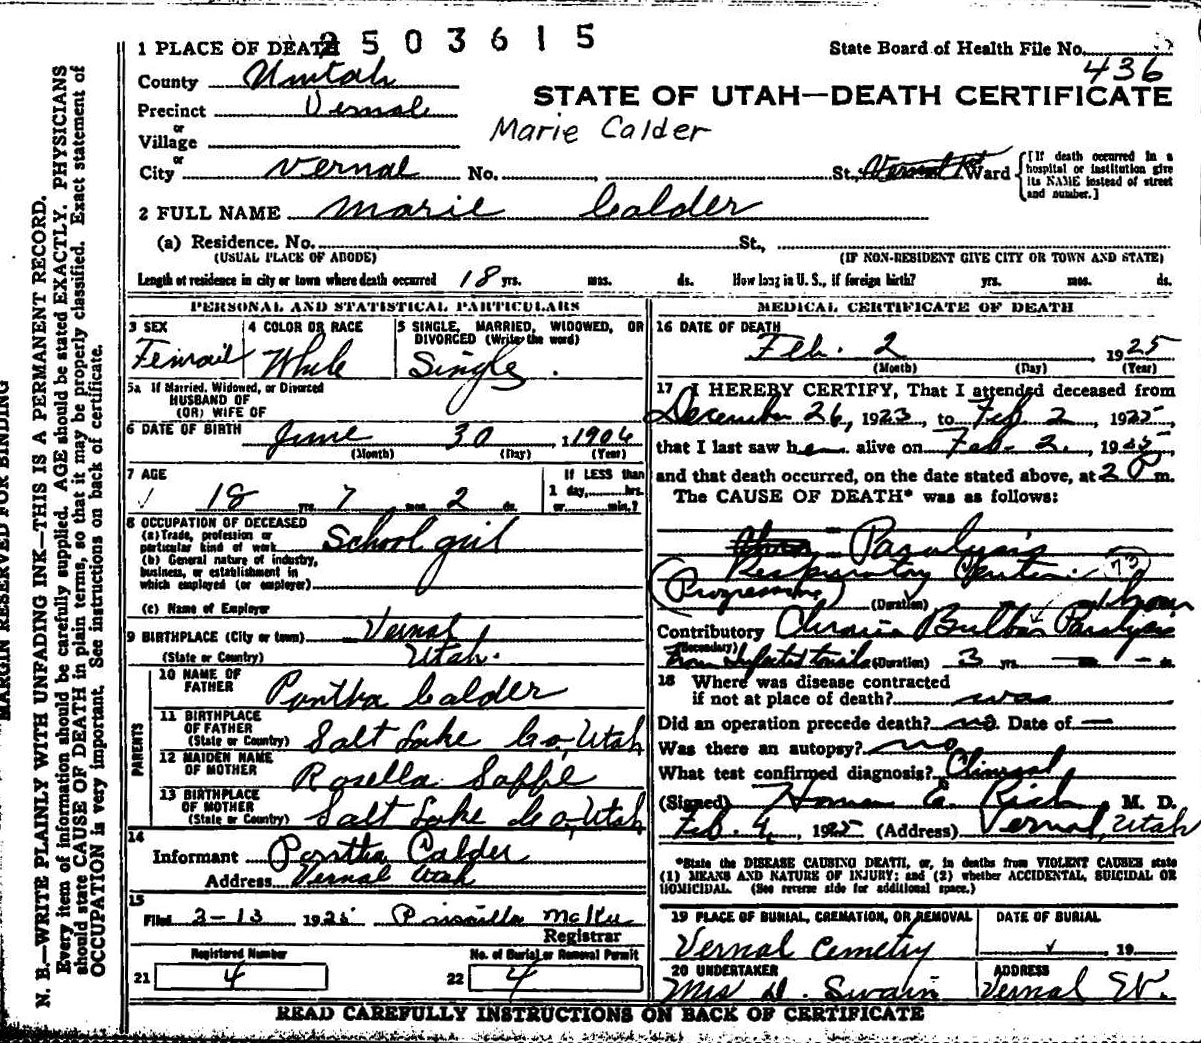 1 PLACE OF DEATH 2503615 State Board of Health File No. 436
County Uintah
Precinct Vernal
STATE OF UTAH—DEATH CERTIFICATE
or
Village
Marie Calder
or
City Vernal No. , St., Ward [If death occurred in a hospital or institution give its NAME instead of street and number.]
2 FULL NAME Marie Calder
(a) Residence. No. St.,
(USUAL PLACE OF ABODE) (IF NON-RESIDENT GIVE CITY OR TOWN AND STATE)
Length of residence in city or town where death occurred 18 yrs. mos. ds. How long in U. S., if foreign birth? yrs. mos. ds.
PERSONAL AND STATISTICAL PARTICULARS
3 SEX
Femail
4 COLOR OR RACE
White
5 SINGLE, MARRIED, WIDOWED, OR
DIVORCED (Write the word)
Single.
5a If Married, Widowed, or Divorced
HUSBAND OF
(OR) WIFE OF
6 DATE OF BIRTH June 30, 1906
(Month) (Day) (Year)
7 AGE
18 yrs. 7 mos. 2 ds.
If LESS than
1 day, hrs.
or min.?
8 OCCUPATION OF DECEASED
(a) Trade, profession or
particular kind of work School girl
(b) General nature of industry,
business, or establishment in
which employed (or employer)
(c) Name of Employer
9 BIRTHPLACE (City or town) Vernal
(State or Country) Utah.
PARENTS
10 NAME OF
FATHER Calder
11 BIRTHPLACE
OF FATHER
(State or Country) Salt Lake Co, Utah
12 MAIDEN NAME
OF MOTHER Rosella
13 BIRTHPLACE
OF MOTHER
(State or Country) Salt Lake Co, Utah
14
Informant Calder
Address Vernal Utah
15
Filed 2-13 1925 Priscilla McKee
Registrar
Registered Number
21 4
No. of Burial or Removal Permit
22 4
MEDICAL CERTIFICATE OF DEATH
16 DATE OF DEATH
Feb. 2, 1925
(Month) (Day) (Year)
17 I HEREBY CERTIFY, That I attended deceased from
December 26, 1923 to Feb 2, 1925,
that I last saw her alive on Feb. 2, 1925,
and that death occurred, on the date stated above, at 2 P m.
The CAUSE OF DEATH* was as follows:
Paralysis
Respiratory
(Progressive) (Duration) 1 hour
Contributory Chronic Bulbar Paralysis
(Secondary)
From Infected tonsils (Duration) 3 yrs. — mos. — ds.
18 Where was disease contracted
if not at place of death? was
Did an operation precede death? no Date of —
Was there an autopsy? no
What test confirmed diagnosis? Clinical
(Signed) Homer E. Rich, M. D.
Feb. 4, 1925 (Address) Vernal, Utah
*State the DISEASE CAUSING DEATH, or, in deaths from VIOLENT CAUSES state
(1) MEANS AND NATURE OF INJURY; and (2) whether ACCIDENTAL, SUICIDAL OR
HOMICIDAL. (See reverse side for additional space.)
19 PLACE OF BURIAL, CREMATION, OR REMOVAL
Vernal Cemetry
DATE OF BURIAL
, 19
20 UNDERTAKER
Mrs D. Swain
ADDRESS
Vernal Ut.
READ CAREFULLY INSTRUCTIONS ON BACK OF CERTIFICATE
MARGIN RESERVED FOR BINDING
N. B.—WRITE PLAINLY WITH UNFADING INK—THIS IS A PERMANENT RECORD.
Every item of information should be carefully supplied. AGE should be stated EXACTLY. PHYSICIANS
should state CAUSE OF DEATH in plain terms, so that it may be properly classified. Exact statement of
OCCUPATION is very important. See instructions on back of certificate.